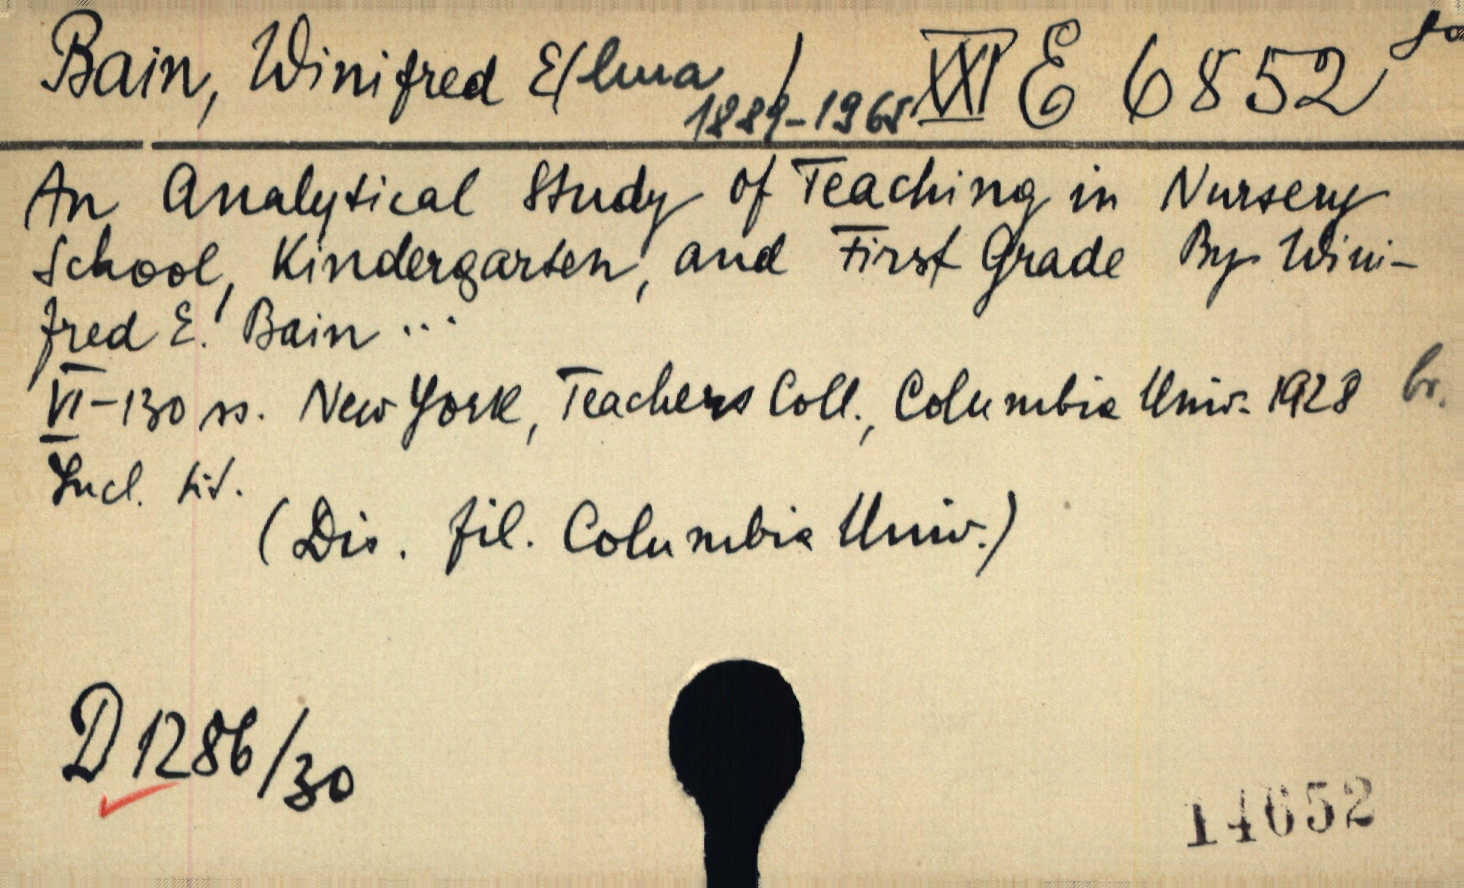 Bain, Winifred E/lma/ XXI E 6852
1889-1965
An Analytical Study of Teaching in Nursery
School, Kindergarten, and First Grade By Wini-
fred E. Bain ...
VI-130 ss. New York, Teachers Coll., Columbia Univ. 1928 br.
Incl. tit.
(Dis. fil. Columbia Univ.)
D 1286/30
14652